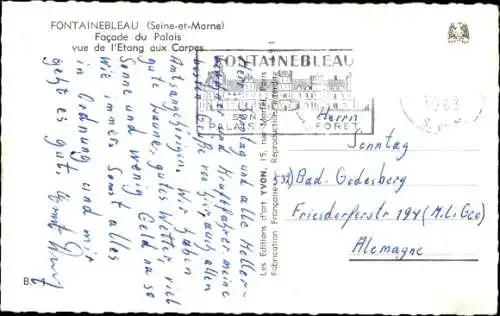 FONTAINEBLEAU (Seine-et-Marne)
Façade du Palais
vue de l'Etang aux Carpes
FONTAINEBLEAU
SON
PALAIS
FORET
1963
Herrn
Sonntag
532) Bad-Godesberg
Friesdorferstr 194 (M.L.Geo)
Alemagne
Herr Sonntag und alle Heller-
und Kraftfahrer meine
besten Grüße von hier aus allen
Amtsangehörigen. Wir haben
gute Laune, gutes Wetter, viel
Sonne und wenig Geld na so
wie immer. Sonst alles
in Ordnung und mir
geht es gut
Les Editions d'art YVON. 15, rue Martel, Paris
Fabrication Française - Reproduction interdite
B.